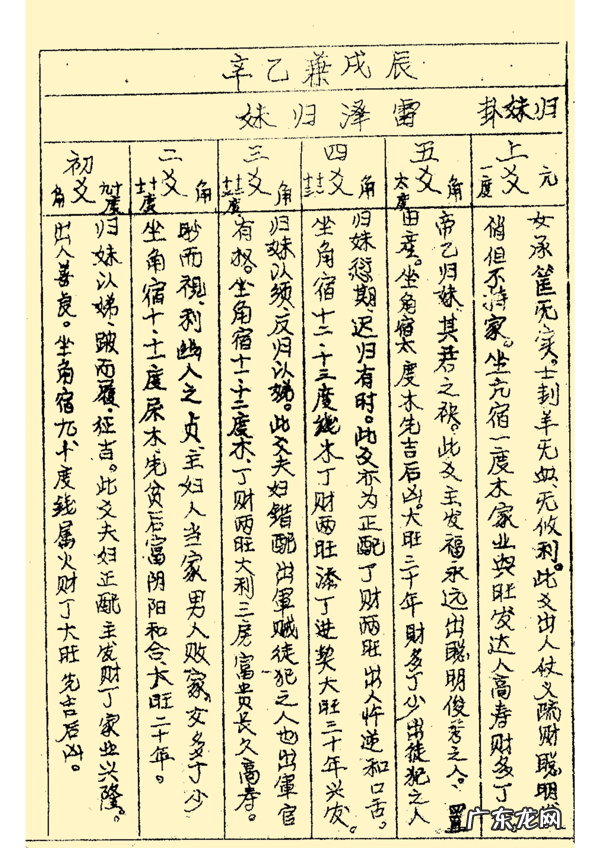 辰戌兼乙辛
归妹卦
雷泽归妹
上爻
亢
一度
女承筐无实。士刲羊无血、无攸利。此爻出人仗义疏财聪明
俏但不持家。坐亢宿一度木家业兴旺发达人高寿财多丁
五爻
角
太度
帝乙归妹、其君之袂。此爻主发福永远出聪明俊秀之人。置
田产。坐角宿太度木先吉后凶。大旺三十年财多丁少出徒犯之人
四爻
角
十二十三
归妹愆期、迟归有时。此爻亦为正配丁财两旺出人忤逆和口舌。
坐角宿十二·十三度线木丁财两旺添丁进契大旺三十年兴发。
三爻
角
十一十二度
归妹以须、反归以娣。此爻夫妇错配出军贼徒犯之人也出军官
有格。坐角宿十一·十二度木、丁财两旺大利三房富贵长久高寿。
二爻
角
十十一度
眇而视、利幽人之贞、主妇人当家男人败家、女多丁少
坐角宿十、十一度属木、先贫后富阴阳和合、大旺二十年。
初爻
角
九十度
归妹以娣、跛而履、征吉。此爻夫妇正配主发财丁家业兴隆。
出人善良。坐角宿九、十度线属火财丁大旺先吉后凶。
广东龙网